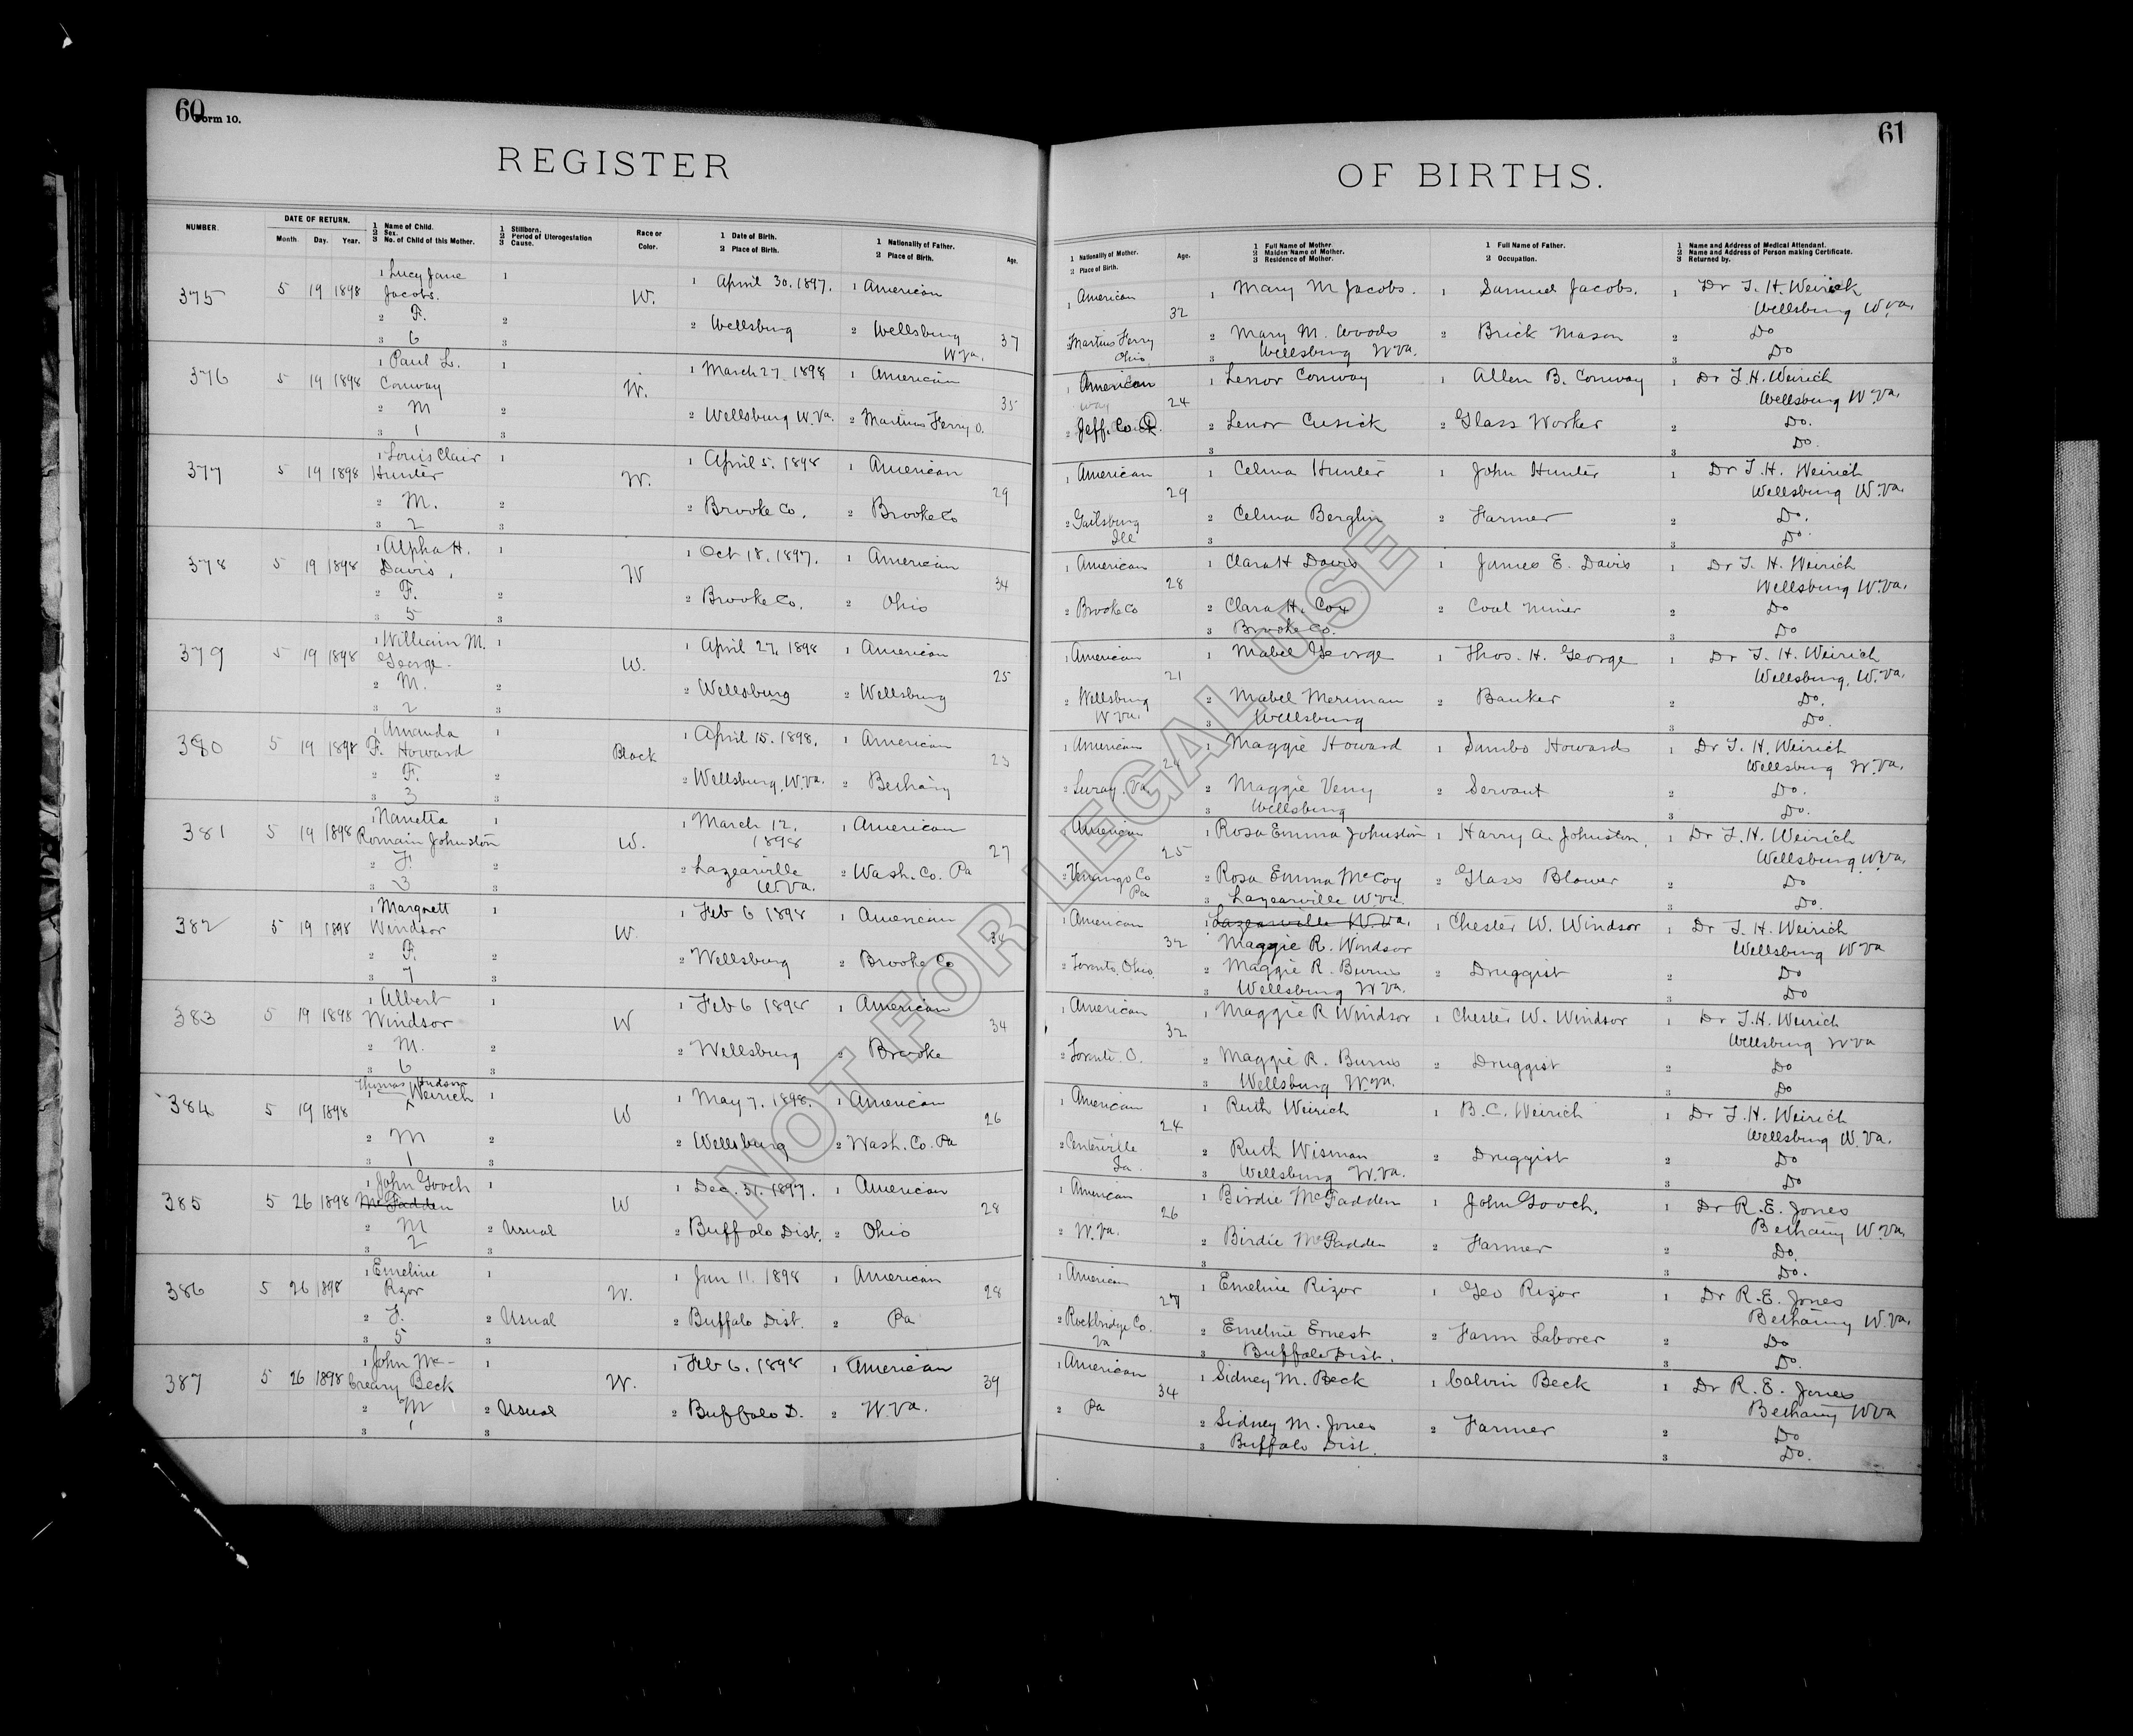 60
Form 10.
REGISTER
NUMBER.
DATE OF RETURN.
Month. Day. Year.
1 Name of Child.
2 Sex.
3 No. of Child of this Mother.
1 Stillborn.
2 Period of Uterogestation
3 Cause.
Race or
Color.
1 Date of Birth.
2 Place of Birth.
1 Nationality of Father.
2 Place of Birth.
Age.
375 5 19 1898 1 Lucy Jane 1 W. 1 April 30. 1897. 1 American
Jacobs.
2 F. 2 2 Wellsburg 2 Wellsburg 37
3 6 3 W Va.
376 5 19 1898 1 Paul L. 1 W. 1 March 27. 1898 1 American
Conway
2 M 2 2 Wellsburg W. Va. 2 Martins Ferry O. 35
3 1 3
377 5 19 1898 1 Louis Clair 1 W. 1 April 5. 1898 1 American
Hunter
2 M. 2 2 Brooke Co. 2 Brooke Co 29
3 2 3
378 5 19 1898 1 Alpha H. 1 W 1 Oct 18. 1897. 1 American
Davis.
2 F. 2 2 Brooke Co. 2 Ohio 34
3 5 3
379 5 19 1898 1 William M. 1 W. 1 April 27. 1898 1 American
George
2 M. 2 2 Wellsburg 2 Wellsburg 25
3 2 3
380 5 19 1898 1 Amanda 1 Black 1 April 15. 1898. 1 American
F. Howard
2 F. 2 2 Wellsburg, W. Va. 2 Bethany 23
3 3 3
381 5 19 1898 1 Nanetta 1 W. 1 March 12. 1 American
Romain Johnston 1898
2 F. 2 2 Lazearville 2 Wash. Co. Pa 27
3 3 3 W. Va.
382 5 19 1898 1 Margrett 1 W. 1 Feb 6 1898 1 American
Windsor
2 F. 2 2 Wellsburg 2 Brooke Co 34
3 7 3
383 5 19 1898 1 Albert 1 W 1 Feb 6 1898 1 American
Windsor
2 M. 2 2 Wellsburg 2 Brooke 34
3 6 3
384 5 19 1898 Thomas Judson
1 Weirich 1 W 1 May 7. 1898. 1 American
2 M 2 2 Wellsburg 2 Wash. Co. Pa 26
3 1 3
385 5 26 1898 1 John Gooch 1 W 1 Dec. 31. 1897. 1 American
McFadden
2 M 2 Usual 2 Buffalo Dist. 2 Ohio 28
3 2 3
386 5 26 1898 1 Emeline 1 W. 1 Jan 11. 1898 1 American
Rizor
2 F. 2 Usual 2 Buffalo Dist. 2 Pa 28
3 5 3
387 5 26 1898 1 John Mc- 1 W. 1 Feb 6. 1898 1 American
Creary Beck
2 M 2 Usual 2 Buffalo D. 2 W. Va. 39
3 1 3
61
OF BIRTHS.
1 Nationality of Mother.
2 Place of Birth.
Age.
1 Full Name of Mother.
2 Maiden Name of Mother.
3 Residence of Mother.
1 Full Name of Father.
2 Occupation.
1 Name and Address of Medical Attendant.
2 Name and Address of Person making Certificate.
3 Returned by.
1 American 32 1 Mary M Jacobs. 1 Samuel Jacobs. 1 Dr T. H. Weirich
Wellsburg W. Va.
2 Martins Ferry 2 Mary M. Woods 2 Brick Mason 2 Do
Ohio 3 Wellsburg W Va. 3 Do
1 American 24 1 Lenor Conway 1 Allen B. Conway 1 Dr T. H. Weirich
way Wellsburg W. Va.
2 Jeff. Co. O. 2 Lenor Cusick 2 Glass Worker 2 Do.
3 3 Do.
1 American 29 1 Celma Hunter 1 John Hunter 1 Dr T. H. Weirich
Wellsburg W. Va.
2 Gailsburg 2 Celma Berglin 2 Farmer 2 Do.
Ill 3 3 Do.
1 American 28 1 Clara H Davis 1 James E. Davis 1 Dr T. H. Weirich
Wellsburg W. Va.
2 Brooke Co 2 Clara H. Cox 2 Coal Miner 2 Do
3 Brooke Co. 3 Do
1 American 21 1 Mabel George 1 Thos. H. George 1 Dr T. H. Weirich
Wellsburg, W. Va.
2 Wellsburg 2 Mabel Meriman 2 Banker 2 Do.
W Va. 3 Wellsburg 3 Do.
1 American 24 1 Maggie Howard 1 Sambo Howards 1 Dr T. H. Weirich
Wellsburg W. Va.
2 Luray. Va. 2 Maggie Veny 2 Servant 2 Do.
3 Wellsburg 3 Do.
1 American 25 1 Rosa Emma Johnston 1 Harry A. Johnston. 1 Dr T. H. Weirich
Wellsburg W. Va.
2 Venango Co 2 Rosa Emma McCoy 2 Glass Blower 2 Do
Pa 3 Lazearville W. Va. 3 Do.
1 American 32 1 Lazearville W. Va. 1 Chester W. Windsor 1 Dr T. H. Weirich
Maggie R. Windsor Wellsburg W Va
2 Toronto, Ohio. 2 Maggie R. Burns 2 Druggist 2 Do
3 Wellsburg W Va. 3 Do
1 American 32 1 Maggie R Windsor 1 Chester W. Windsor 1 Dr T. H. Weirich
Wellsburg W Va
2 Toronto. O. 2 Maggie R. Burns 2 Druggist 2 Do
3 Wellsburg W. Va. 3 Do
1 American 24 1 Ruth Weirich 1 B. C. Weirich 1 Dr T. H. Weirich
Wellsburg W. Va.
2 Centerville 2 Ruth Wisman 2 Druggist 2 Do
Ia. 3 Wellsburg W. Va. 3 Do
1 American 26 1 Birdie McFadden 1 John Gooch. 1 Dr R. E. Jones
Bethany W. Va.
2 W. Va. 2 Birdie McFadden 2 Farmer 2 Do.
3 3 Do.
1 American 27 1 Emeline Rizor 1 Geo Rizor 1 Dr R. E. Jones
Bethany W. Va.
2 Rockbridge Co. 2 Emeline Ernest 2 Farm Laborer 2 Do
Va 3 Buffalo Dist. 3 Do.
1 American 34 1 Sidney M. Beck 1 Calvin Beck 1 Dr R. E. Jones
Bethany W Va
2 Pa 2 Sidney M. Jones 2 Farmer 2 Do
3 Buffalo Dist. 3 Do.
NOT FOR LEGAL USE